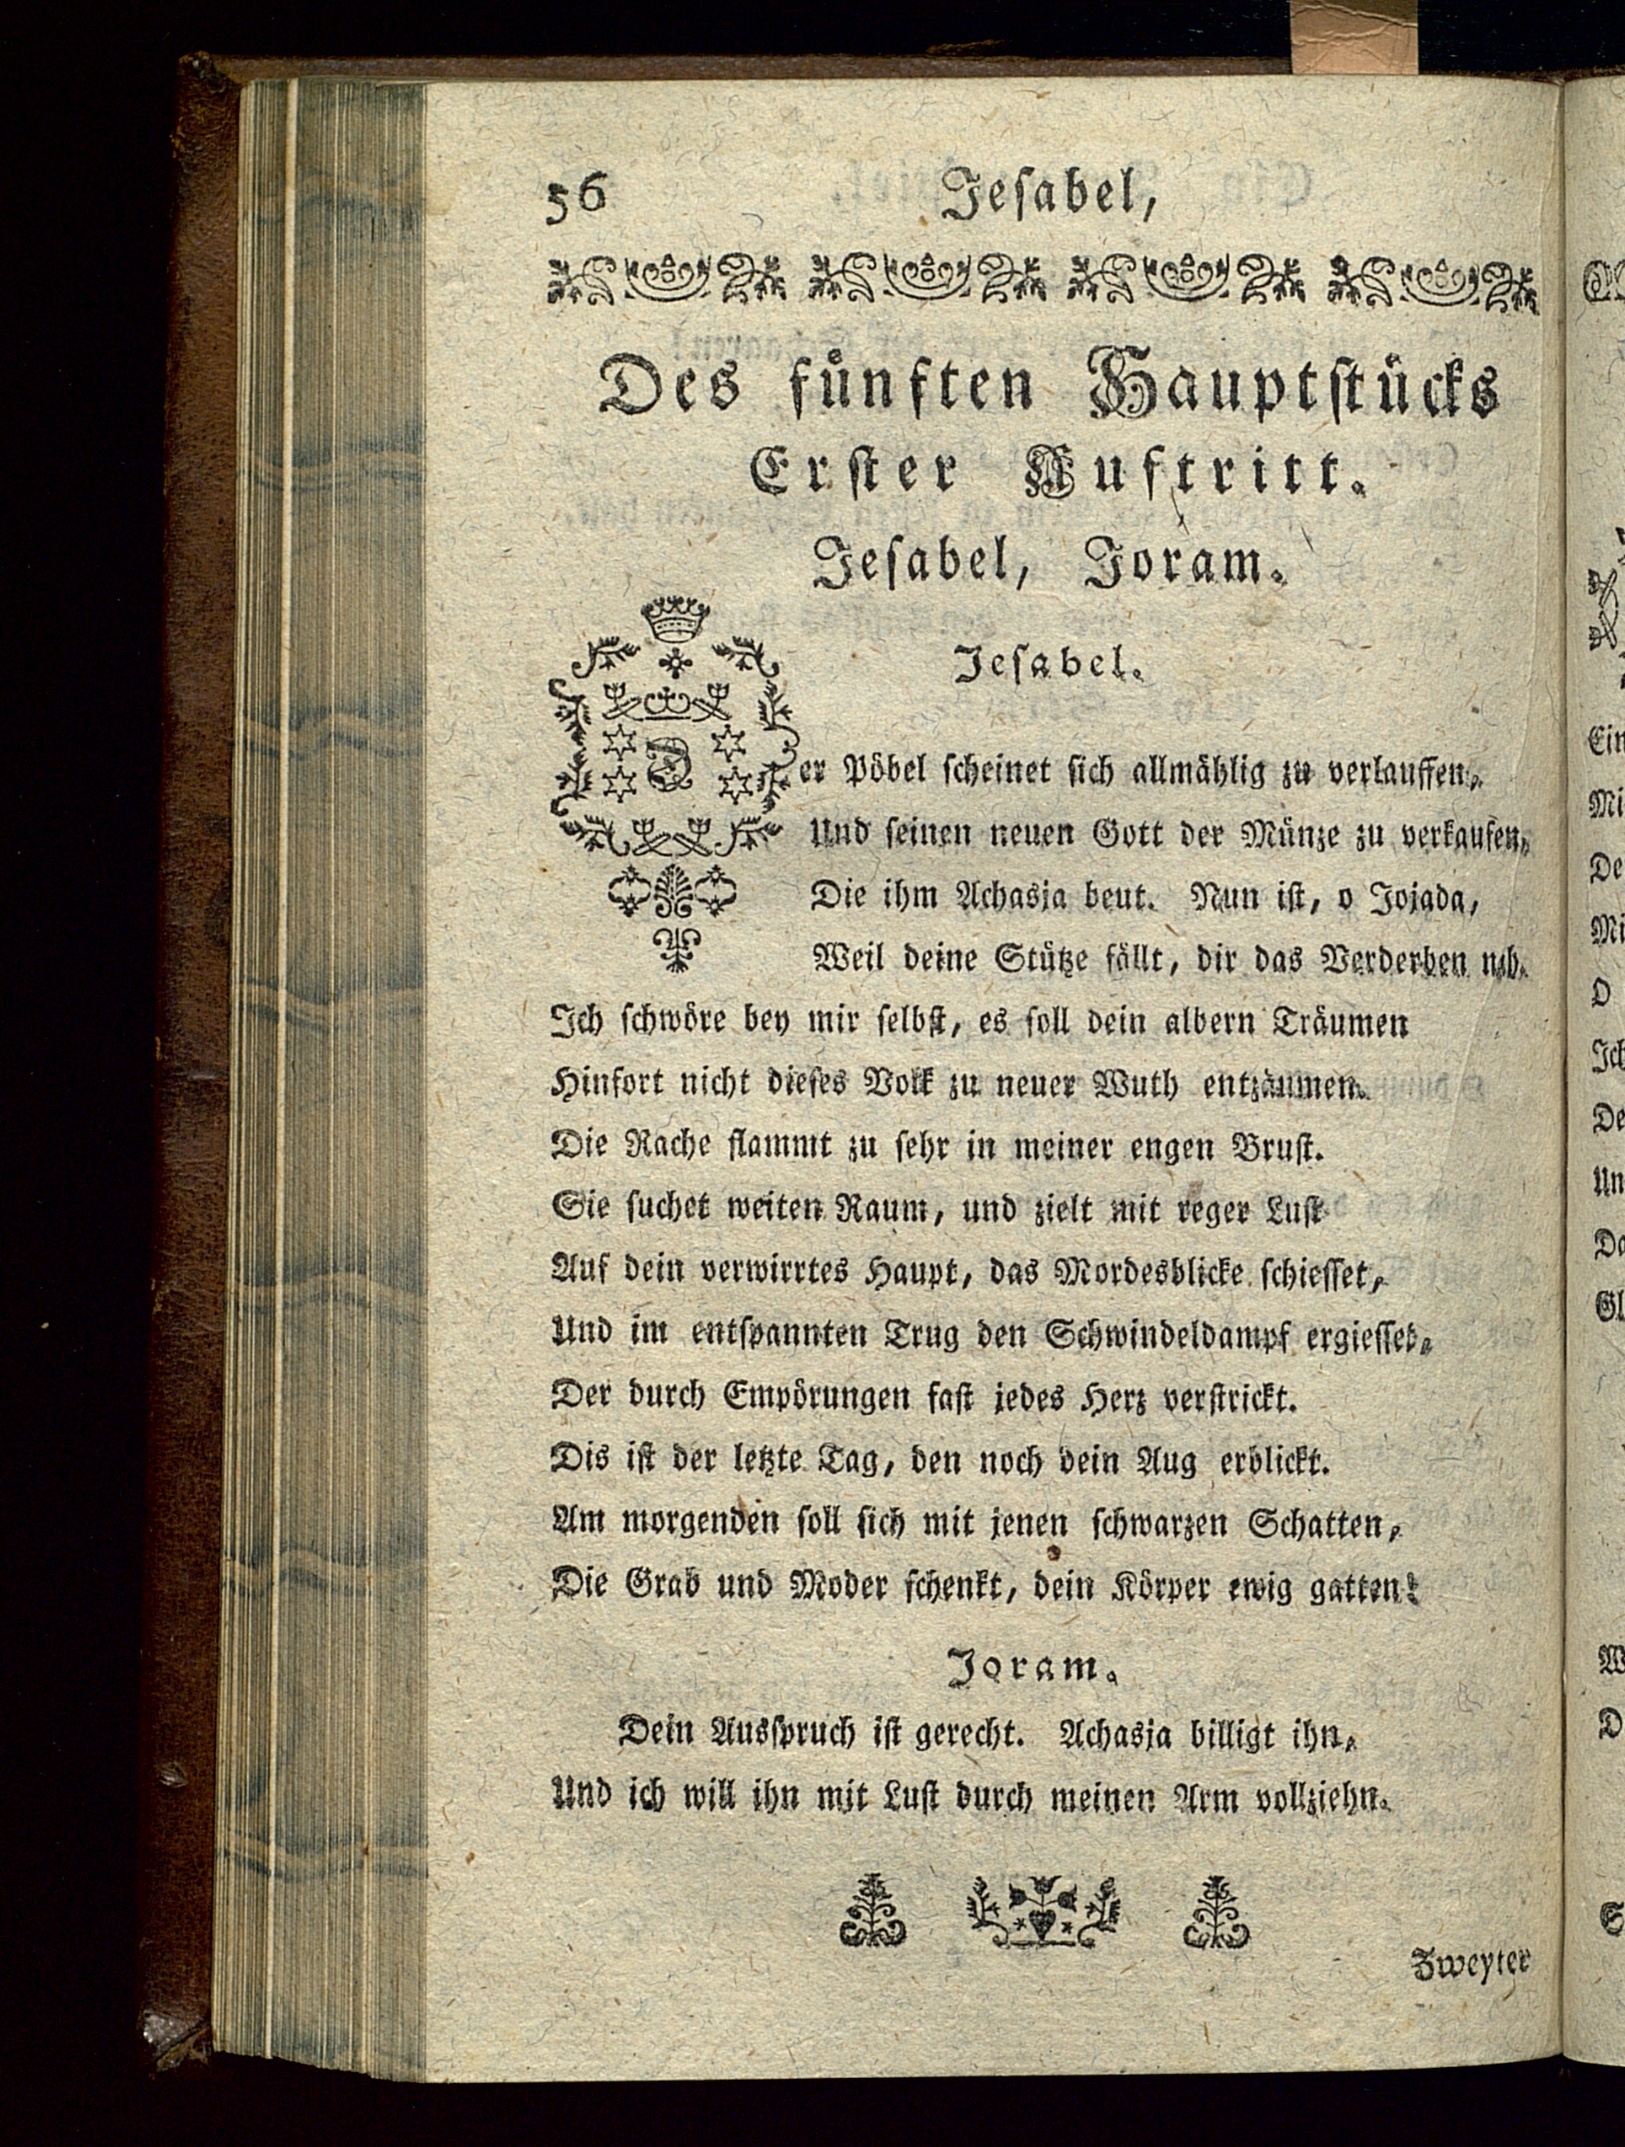 56 Jeſabel,
Des fuͤnften Hauptſtuͤcks
Erſter Auftritt.
Jeſabel, Joram.
Jeſabel.
Der Poͤbel ſcheinet ſich allmaͤhlig zu verlauffen,
Und ſeinen neuen Gott der Muͤnze zu verkaufen,
Die ihm Achasja beut. Nun iſt, o Jojada,
Weil deine Stuͤtze faͤllt, dir das Verderben nah.
Ich ſchwoͤre bey mir ſelbſt, es ſoll dein albern Traͤumen
Hinfort nicht dieſes Volk zu neuer Wuth entzaͤumen.
Die Rache flammt zu ſehr in meiner engen Bruſt.
Sie ſuchet weiten Raum, und zielt mit reger Luſt
Auf dein verwirrtes Haupt, das Mordesblicke ſchieſſet,
Und im entſpannten Trug den Schwindeldampf ergieſſet,
Der durch Empoͤrungen faſt jedes Herz verſtrickt.
Dis iſt der letzte Tag, den noch dein Aug erblickt.
Am morgenden ſoll ſich mit jenen ſchwarzen Schatten,
Die Grab und Moder ſchenkt, dein Koͤrper ewig gatten!
Joram.
Dein Ausſpruch iſt gerecht. Achasja billigt ihn,
Und ich will ihn mit Luſt durch meinen Arm vollziehn.
Zweyter